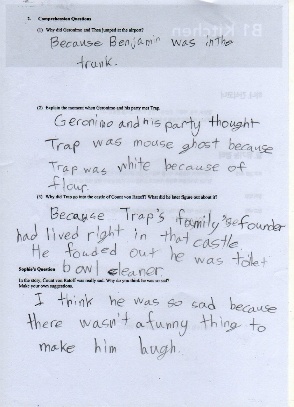 2. Comprehension Questions
(1) Why did Geronimo and Thea jumped at the airport?
Because Benjamin was in the
trunk.
(2) Explain the moment when Geronimo and his party met Trap.
Geronimo and his party thought
Trap was mouse ghost because
Trap was white because of
flour.
(3) Why did Trap go into the castle of Count von Ratoff? What did he later figure out about it?
Because Trap's family's founder
had lived right in that castle.
He founded out he was toilet
bowl cleaner.
Sophie's Question
In the story, Count von Ratoff was really sad. Why do you think he was so sad?
Make your own suggestions.
I think he was so sad because
there wasn't a funny thing to
make him laugh.